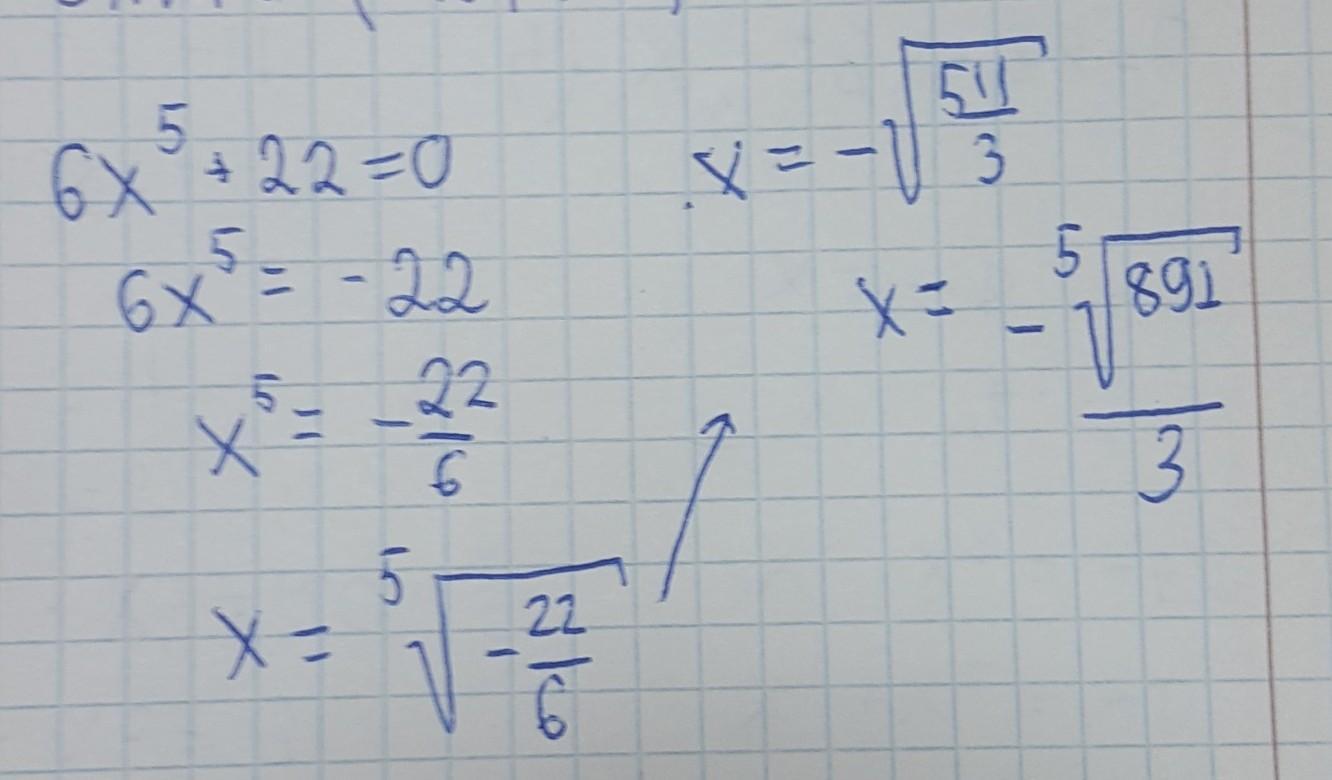 6x⁵ + 22 = 0
6x⁵ = - 22
x⁵ = - 22/6
x = ⁵√(- 22/6)
x = - √(511/3)
x = - ⁵√891 / 3